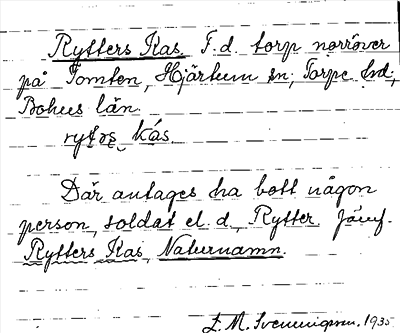 Rytters Kas. F.d. torp norröver
på Tomten, Hjärtum sn, Torpe hd,
Bohus län.
kás.
Där antages ha bott någon
person, soldat el. d., Rytter. Jämf.
Rytters Kas, Naturnamn.
E. M. Svenningson. 1935